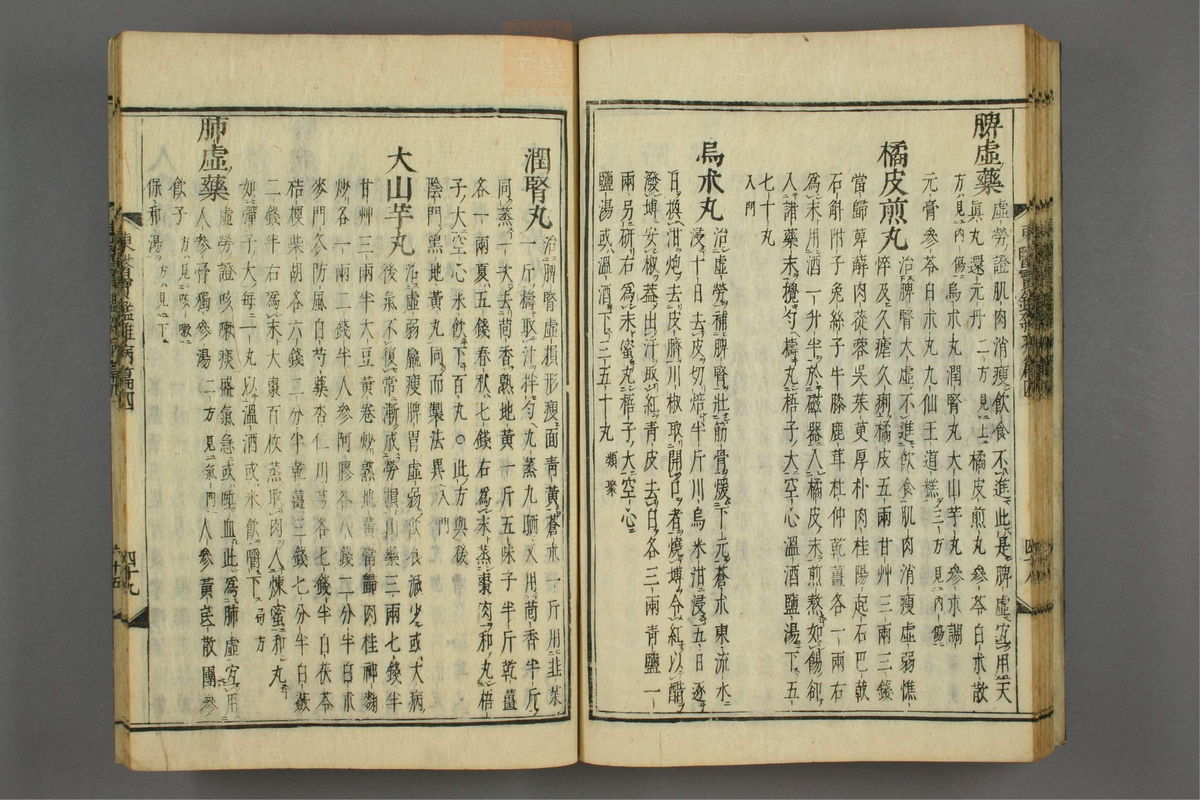 脾虛藥
虛勞證肌肉消瘦飮食不進此是脾虛宜用天
方見內傷烏朮丸潤腎丸大山芋丸參朮調
眞丸還元丹二方見上橘皮煎丸參苓白朮散
元膏參苓白朮丸九仙王道糕三方見內傷
橘皮煎丸
治脾腎大虛不進飮食肌肉消瘦虛弱憔
悴及久瘧久痢橘皮五兩甘艸三兩三錢
當歸萆薢肉蓯蓉吳茱萸厚朴肉桂陽起石巴戟
石斛附子兔絲子牛膝鹿茸杜仲乾薑各一兩右
爲末用酒一升半於磁器入橘皮末煎熬如餳卻
入諸藥末攪勻擣丸梧子大空心溫酒鹽湯下五
七十丸
入門
烏朮丸
治虛勞補脾腎壯筋骨煖下元蒼朮東流水
浸十日去皮切焙半斤川烏米泔浸五日逐
日換泔炮去皮臍川椒取開口者燒塼令紅以醋
潑塼安椒蓋出汗取紅靑皮去白各三兩靑鹽一
兩另硏右爲末蜜丸梧子大空心
鹽湯或溫酒下三五十丸類聚
潤腎丸
治脾腎虛損形瘦面靑黃蒼朮一斤用韭菜
一斤擣取汁拌勻九蒸九晒又用茴香半斤
同蒸一次去茴香熟地黃一斤五味子半斤乾薑
各一兩夏五錢春秋七錢右爲末蒸棗肉和丸梧
子大空心米飮下百丸○此方與後
陰門黑地黃丸同而製法異入門
大山芋丸
治虛弱羸瘦脾胃虛弱飮食減少或大病
後氣不復常漸成勞損山藥三兩七錢半
甘艸三兩半大豆黃卷炒熟地黃當歸肉桂神麴
炒各一兩二錢半人參阿膠各八錢二分半白朮
麥門冬防風白芍藥杏仁川芎各七錢半白茯苓
桔梗柴胡各六錢二分半乾薑三錢七分半白蘞
二錢半右爲末大棗百枚蒸取肉入煉蜜和丸
如彈子大每一丸以溫酒或米飮嚼下局方
肺虛藥
虛勞證咳嗽痰盛氣急或唾血此爲肺虛宜用
人參膏獨參湯二方見氣門人參黃芪散團參
飮子方見咳嗽
保和湯方見下
東醫寶鑑雜病篇四
四十九